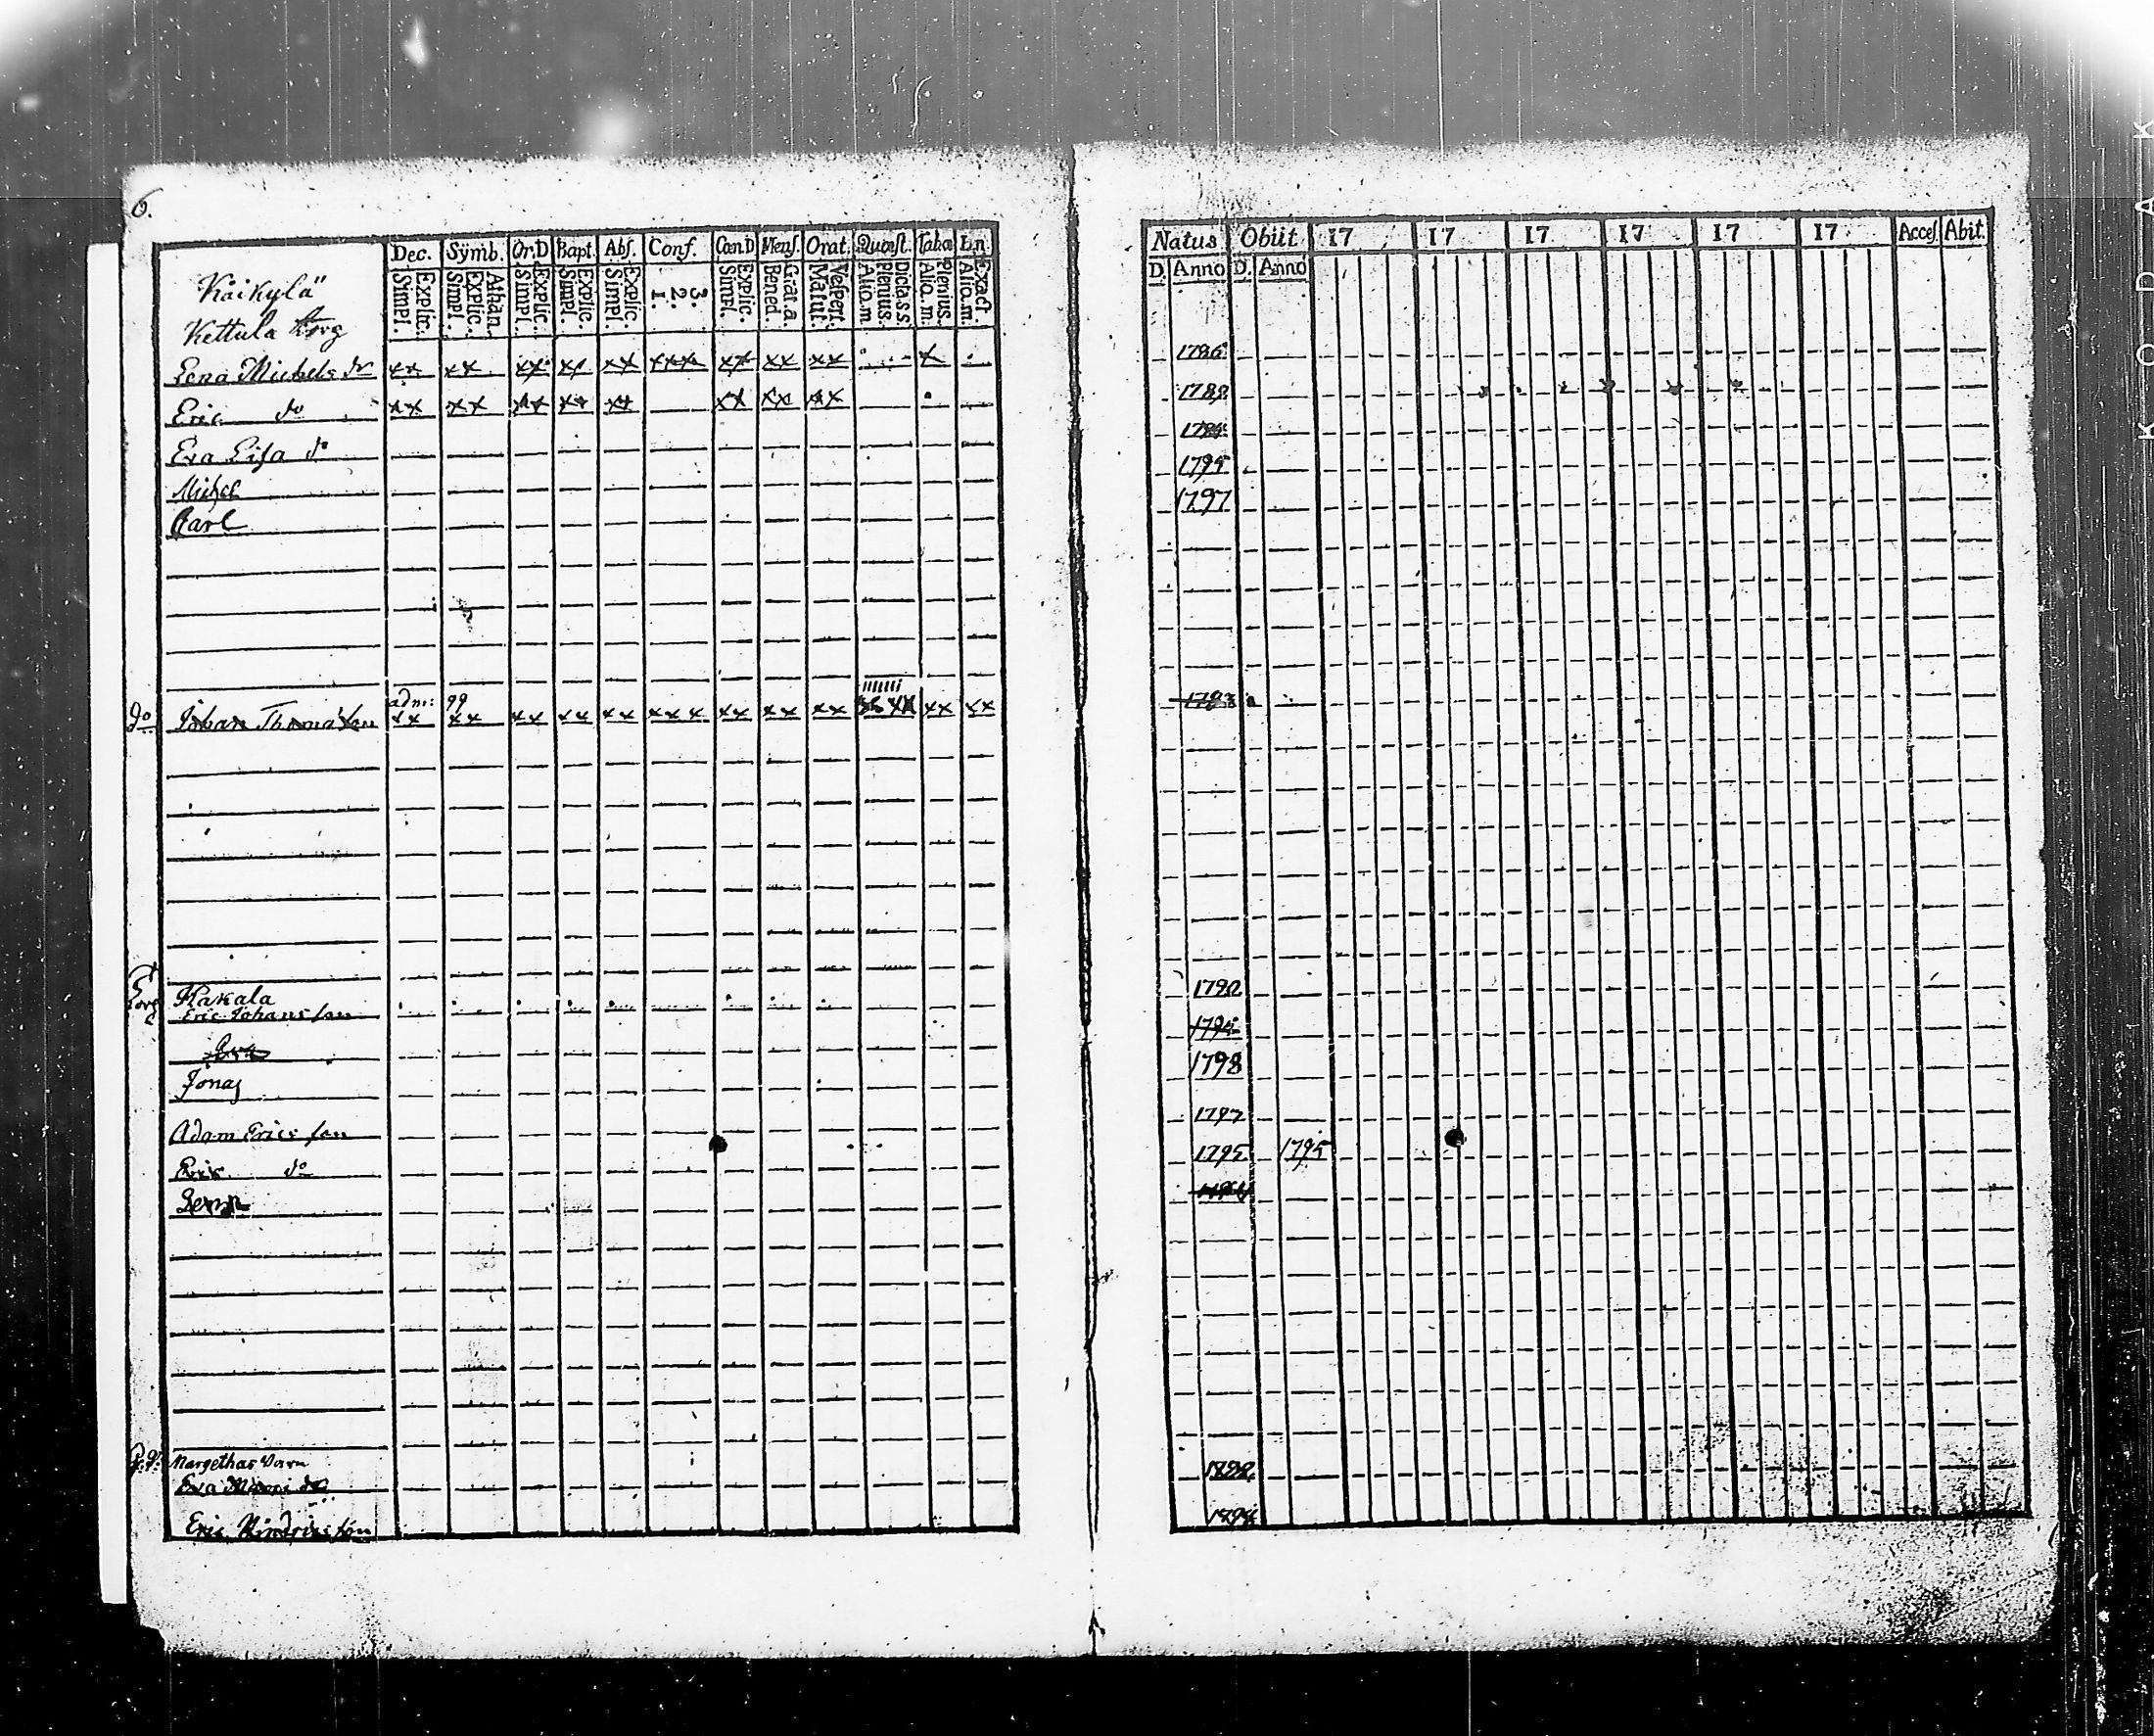 6.
Dec. Symb. Or.D Bapt. Abs. Conf. Can.D Mens. Orat. Quæst. Taba Ln.
Simpl. Explic. Simpl. Explic. Athan. Simpl. Explic. Simpl. Explic. Simpl. Explic. 1. 2. 3. Simpl. Explic. Bened. Grat.a. Matut. Vespert. Alio.m. Plenius. Dicta.s.s. Alio.m. Plenius. Alio.m. Exact.
Natus Obiit 17 17 17 17 17 17 Acces. Abit.
D. Anno D. Anno
Kåikylä
Kettula Torg
Lena Michels dr xx xx xx xx xx xxx xx xx xx x 1786
Eric do xx xx xx xx xx xx xx xx 1789
Eva Lisa do
Michel 1795
Carl 1797
adm: 99
do Johan Thomasson xx xx xx xx xx xxx xx xx xx xx xx 1783
Torg Kakala
Eric Johansson 1792
Eva
Jonas 1798
Adam Ericsson 1792
Eric do 1795 1795
Margethas barn
Eva
Eric Hindricsson
KODAK